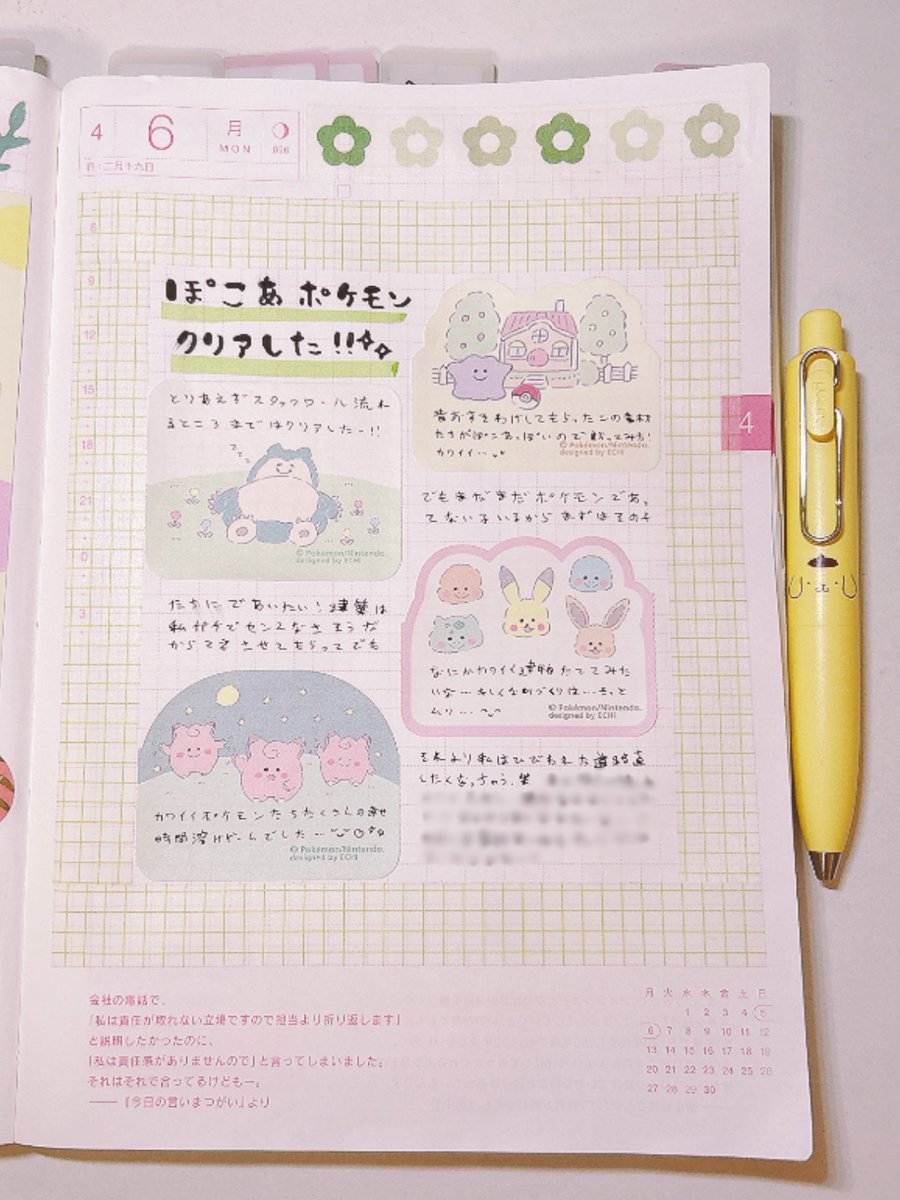 4 6 月 MON
旧:二月十九日
6
9
12
15
18
21
0
3
ぽこあポケモン
クリアした!!
とりあえずスタッフロール流れ
るところまではクリアしたー!!
zzz
© Pokémon/Nintendo.
designed by ECHI
たちにであいたい!建築は
私ガチでセンスなさそうな
からて
させてもらってでも
カワイイポケモンたちたくさんの
時間溶けゲームでした…
© Pokémon/Nintendo.
designed by ECHI
昔おすそわけしてもらったこの素材
たちがぽこあっぽいので貼ってみる!
カワイイ…
© Pokémon/Nintendo.
designed by ECHI
でもまだまだポケモンであっ
てない子いるからまずはその子
なにかカワイイ建物たててみた
いな…楽しくな町づくりは…もっと
ムリ…
© Pokémon/Nintendo.
designed by ECHI
それより私はひびわれた道路直
したくなっちゃう.笑
4
会社の電話で、
「私は責任が取れない立場ですので担当より折り返します」
と説明したかったのに、
「私は責任感がありませんので」と言ってしまいました。
それはそれで合ってるけどもー。
――『今日の言いまつがい』より
月 火 水 木 金 土 日
1 2 3 4 5
6 7 8 9 10 11 12
13 14 15 16 17 18 19
20 21 22 23 24 25 26
27 28 29 30